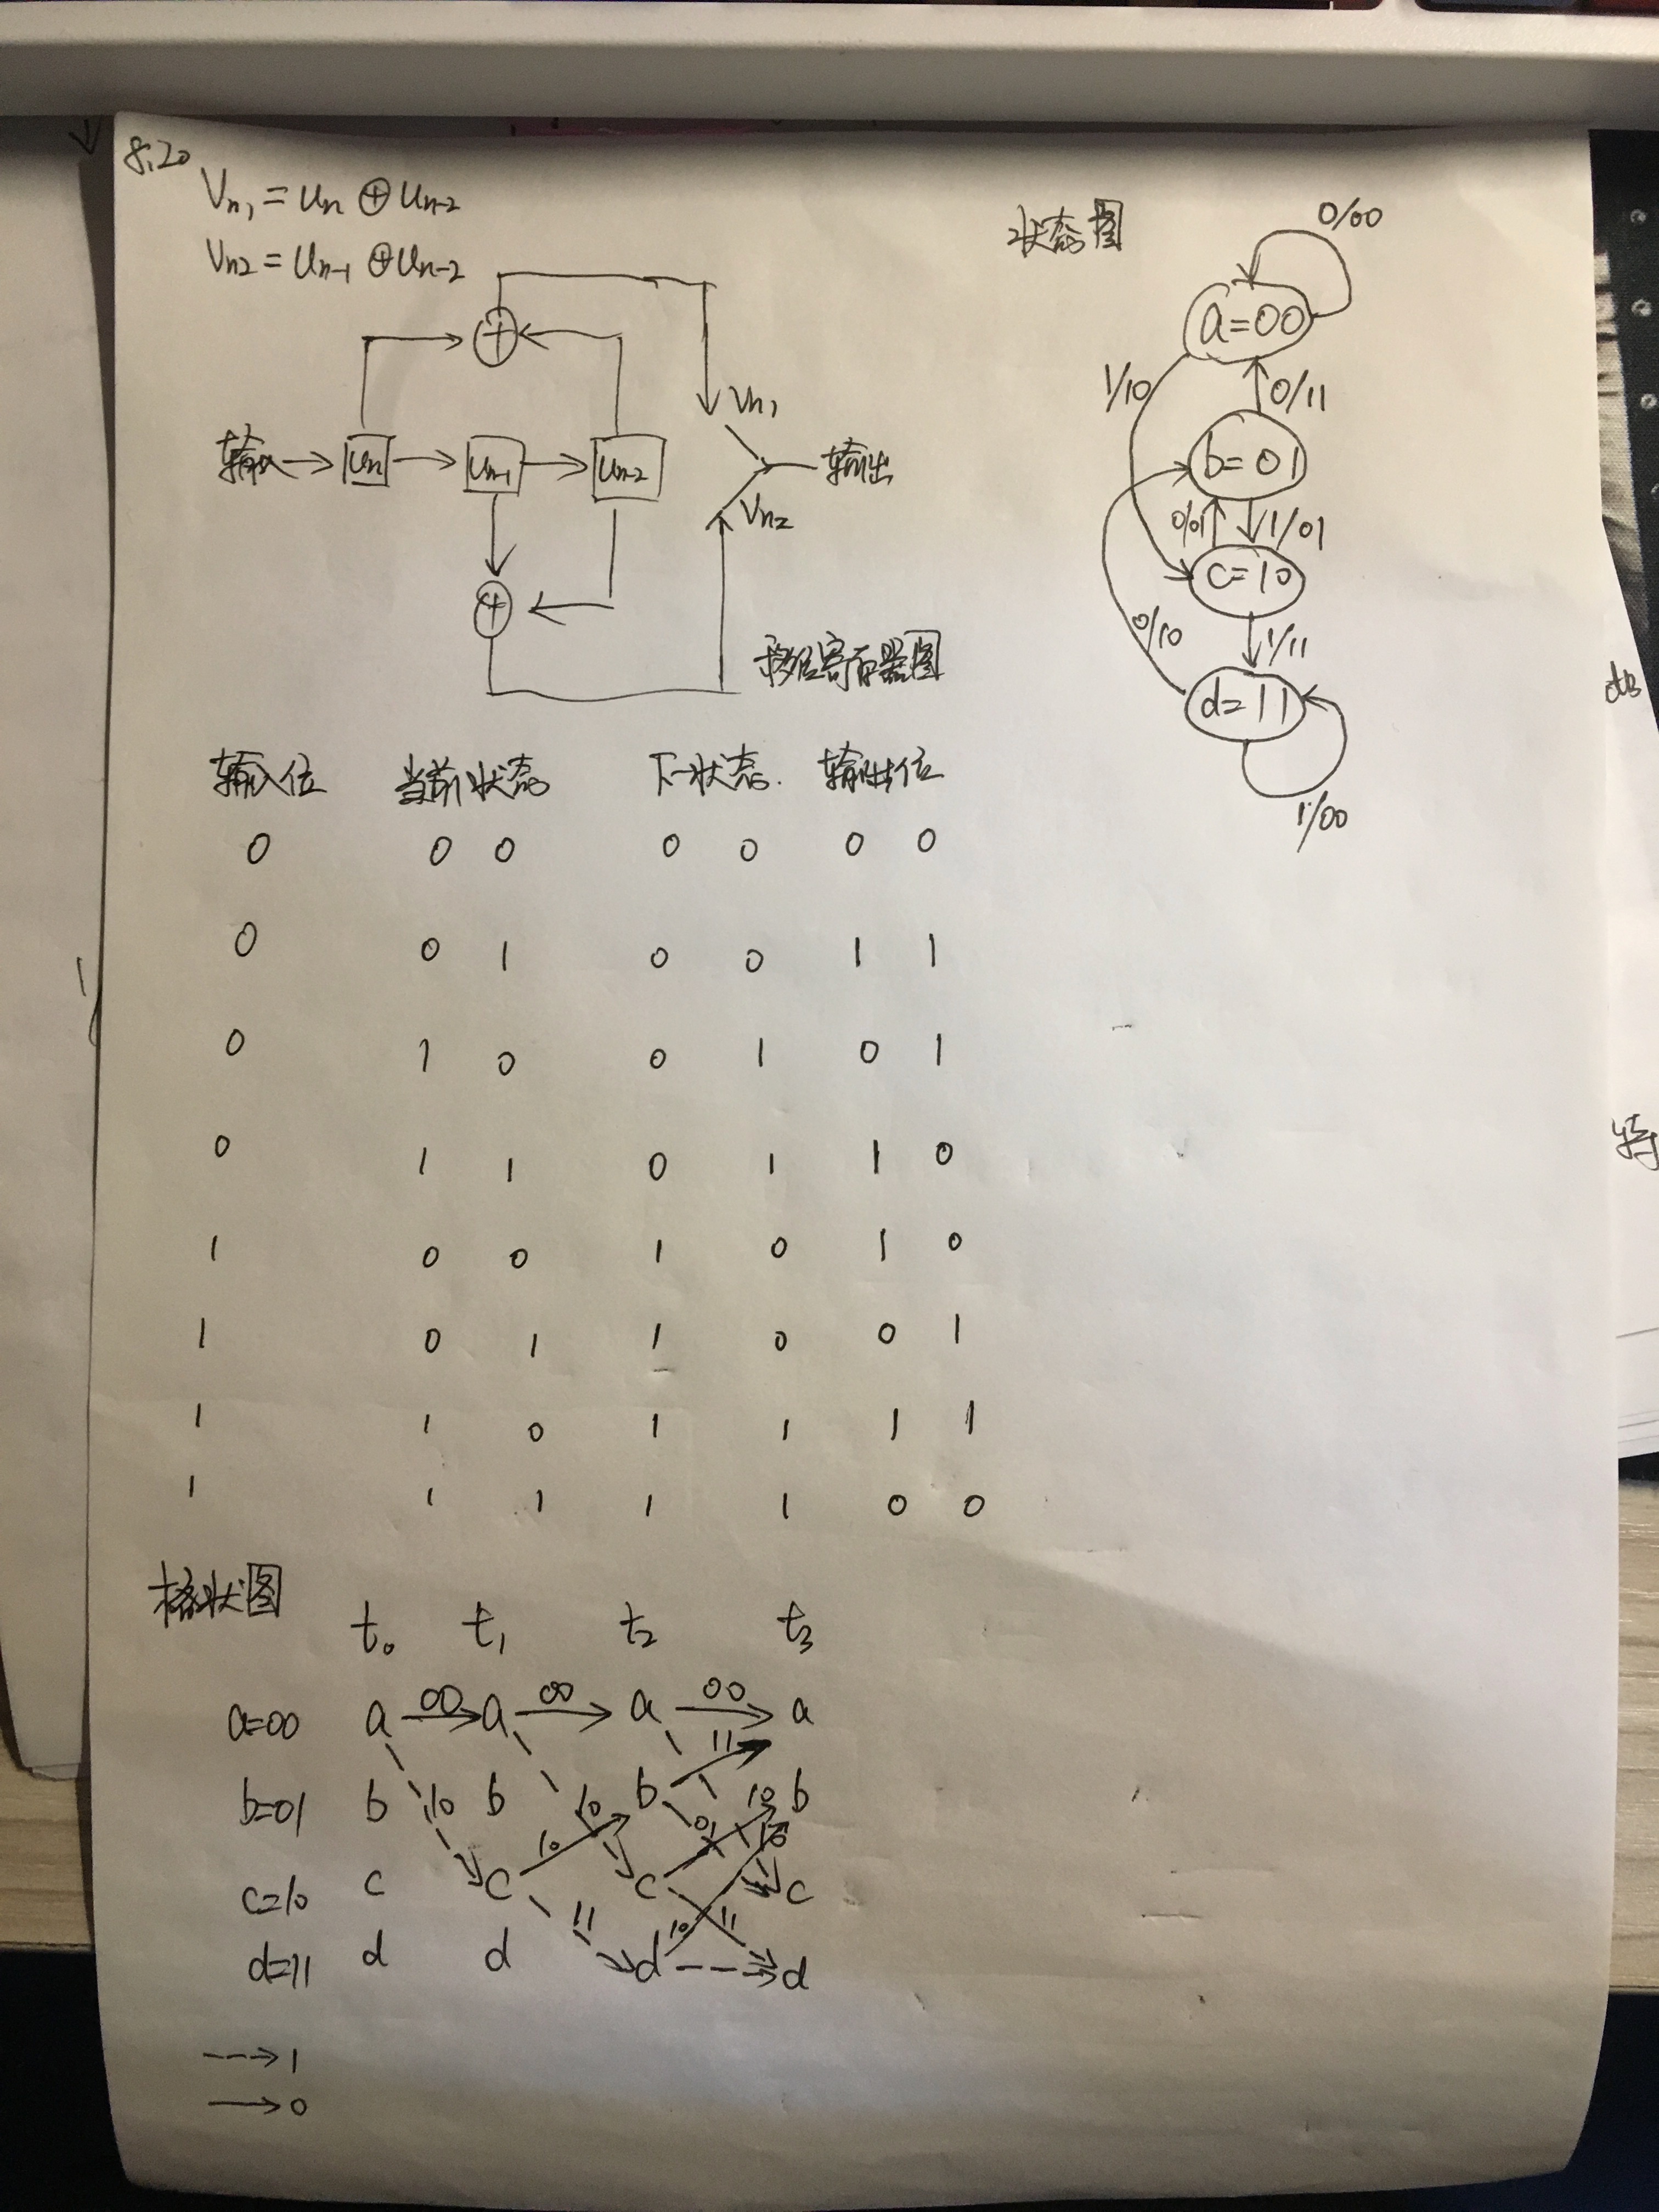 8.20
Vn1 = Un ⊕ Un-2
Vn2 = Un-1 ⊕ Un-2
+
输入 → Un → Un-1 → Un-2
Vn1
输出
Vn2
+
移位寄存器图
状态图
0/00
a=00
1/10 0/11
b=01
0/01 1/01
c=10
0/10 1/11
d=11
1/00
输入位 当前状态 下一状态. 输出位
0 0 0 0 0 0 0
0 0 1 0 0 1 1
0 1 0 0 1 0 1
0 1 1 0 1 1 0
1 0 0 1 0 1 0
1 0 1 1 0 0 1
1 1 0 1 1 1 1
1 1 1 1 1 0 0
格状图
t0 t1 t2 t3
a=00 a 00 a 00 a 00 a
11
b=01 b 10 b 10 b 10 b
10 01 10
c=10 c c c c
11 10 11
d=11 d d d d
---> 1
—> 0
特